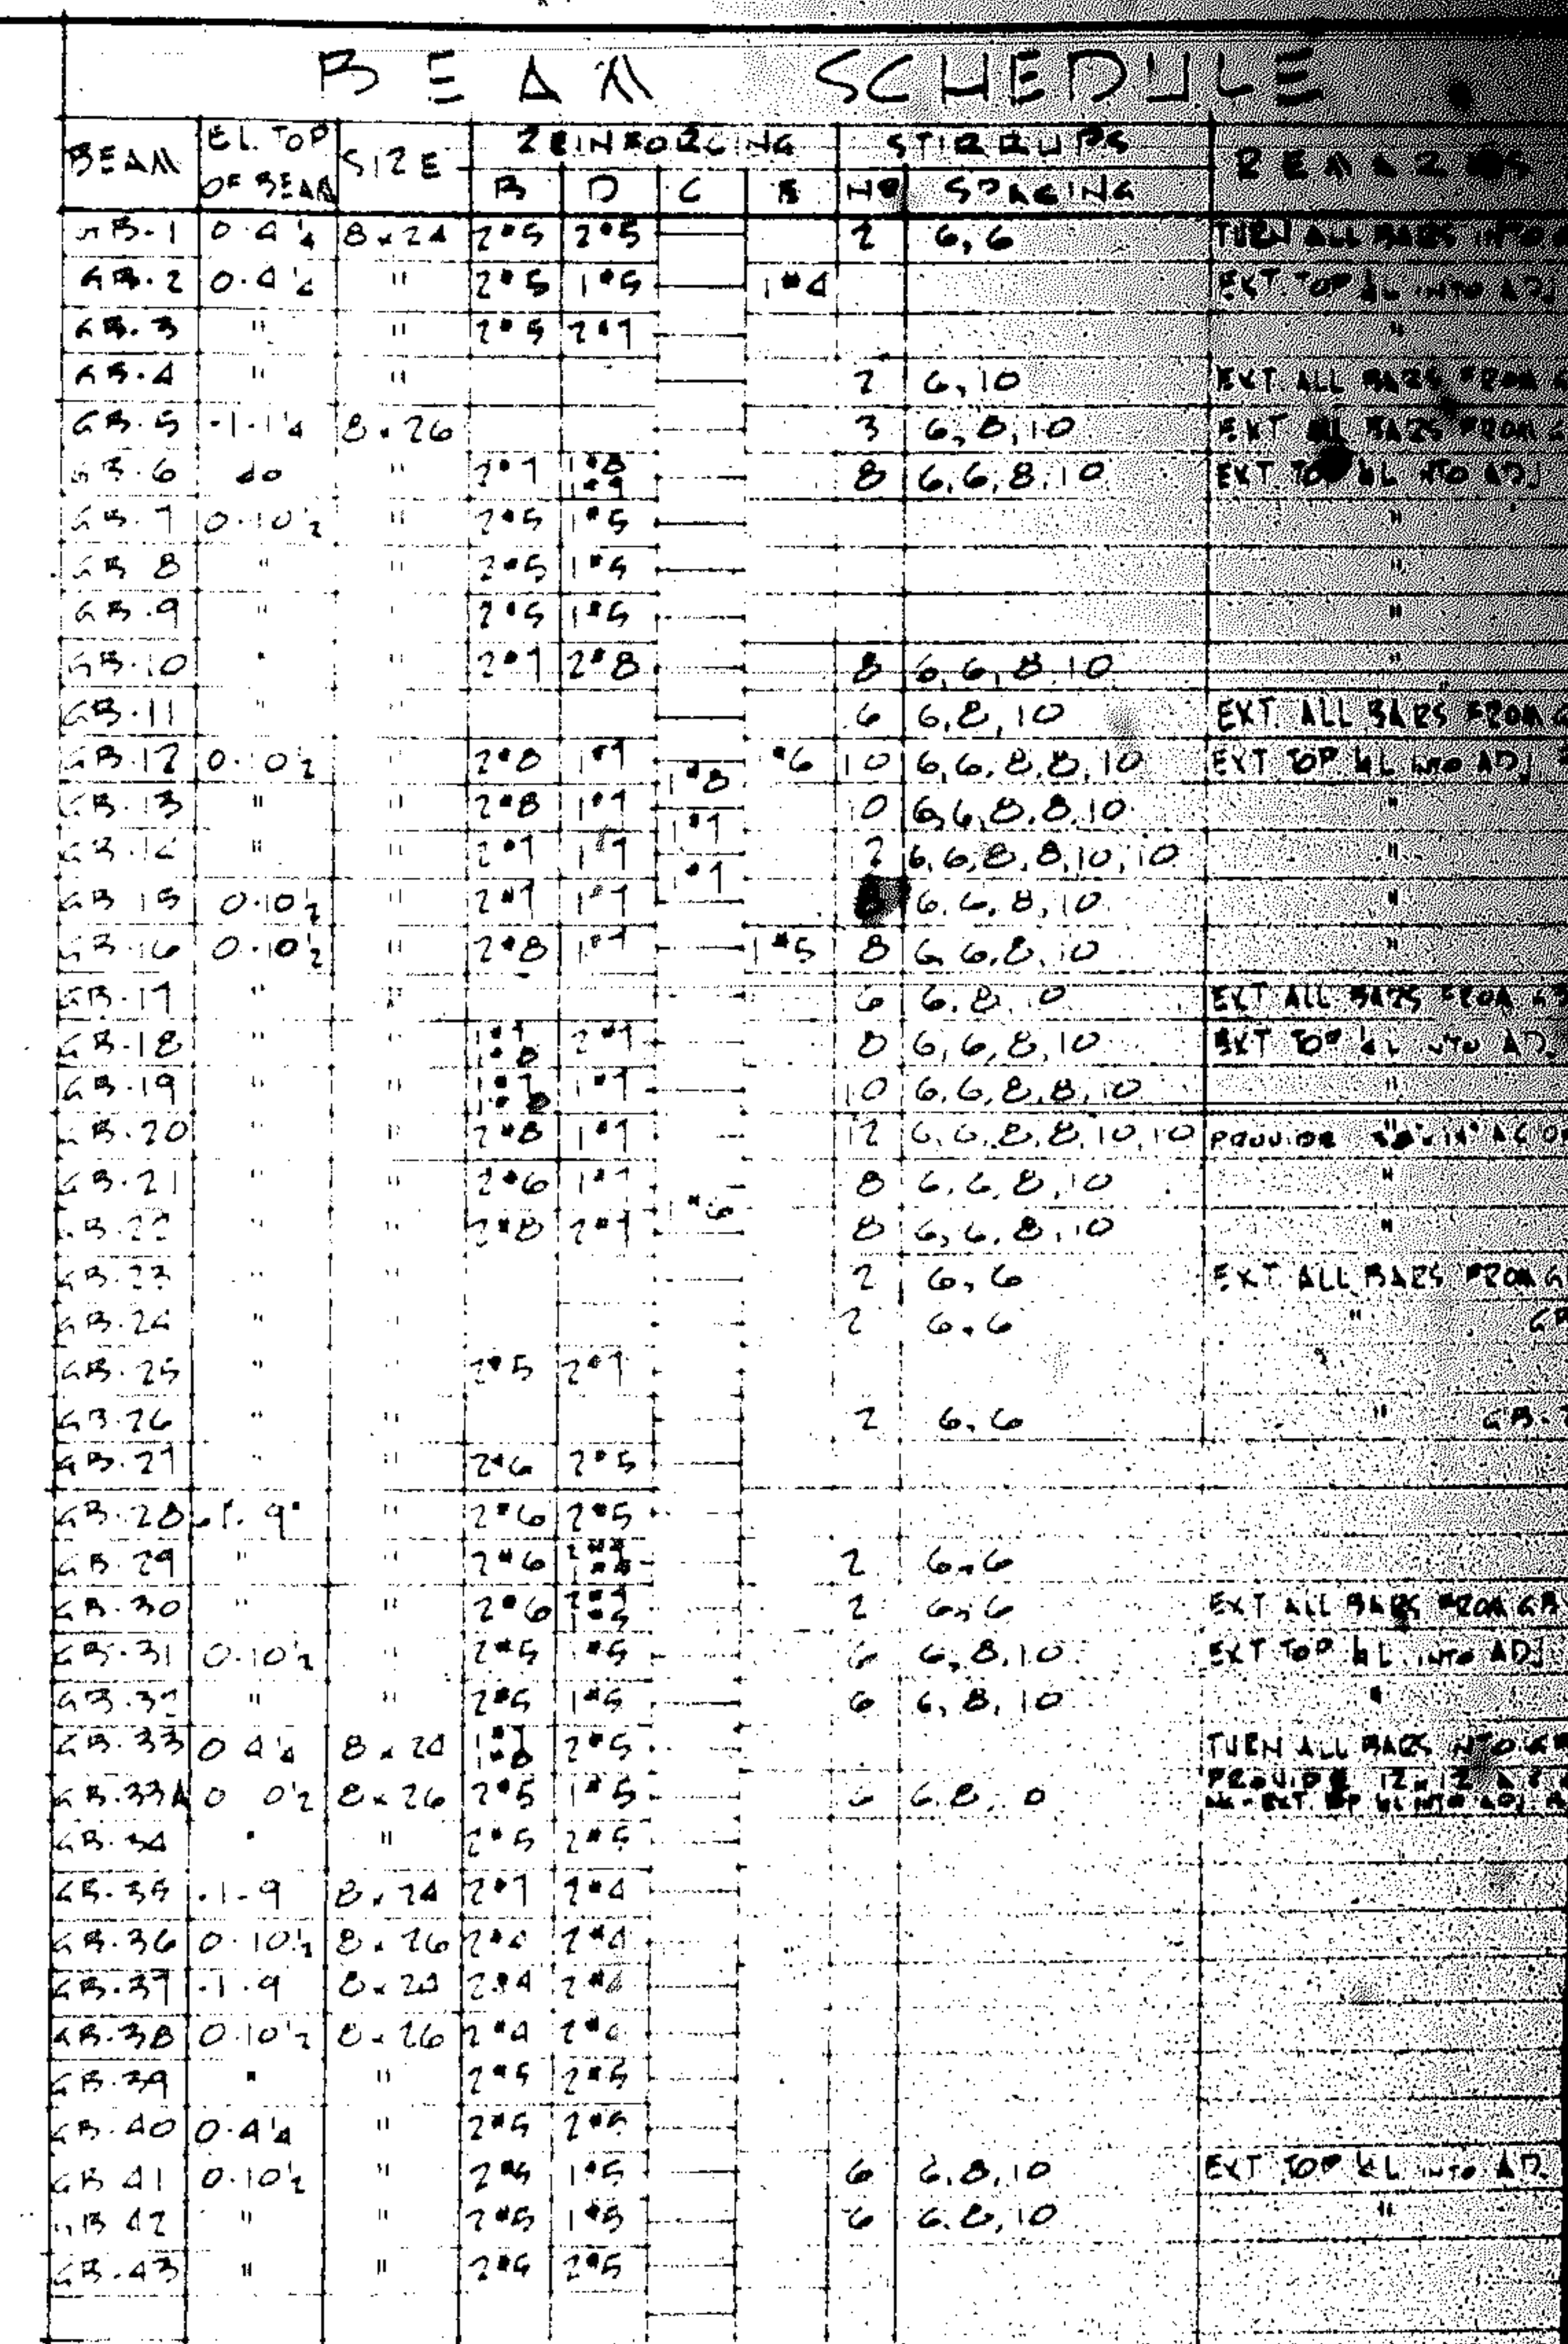 BEAM SCHEDULE
BEAM EL. TOP OF BEAM SIZE REINFORCING STIRRUPS REMARKS
B D C E NO SPACING
GB-1 0-4¼ 8x24 2#5 2#5 2 6,6 TURN ALL BARS INTO
GB-2 0-4¼ " 2#5 1#5 1#4 EXT. TOP ¼L INTO ADJ
GB-3 " " 2#5 2#7 "
GB-4 " " 2 6,10 EXT. ALL BARS FROM
GB-5 -1-1¼ 8x26 3 6,8,10 EXT ALL BARS FROM
GB-6 do " 2#7 1#8 8 6,6,8,10 EXT. TOP ¼L INTO ADJ
GB-7 0-10½ " 2#5 1#5 "
GB-8 " " 2#5 1#5 "
GB-9 " " 2#5 1#5 "
GB-10 " " 2#7 2#8 8 6,6,8,10 "
GB-11 " " 6 6,8,10 EXT. ALL BARS FROM
GB-12 0-10½ 2#8 1#7 1#8 #6 10 6,6,8,8,10 EXT TOP ¼L INTO ADJ
GB-13 " " 2#8 1#7 1#7 10 6,6,8,8,10 "
GB-14 " " 2#7 1#7 1#7 2 6,6,8,8,10,10 "
GB-15 0-10½ " 2#7 1#7 8 6,6,8,10 "
GB-16 0-10½ " 2#8 1#7 1#5 8 6,6,8,10 "
GB-17 " " 6 6,8,10 EXT ALL BARS FROM
GB-18 " " 1#7 1#8 2#7 8 6,6,8,10 EXT TOP ¼L INTO AD.
GB-19 " " 1#7 1#8 1#7 10 6,6,8,8,10 "
GB-20 " " 2#8 1#7 12 6,6,8,8,10,10 PROVIDE
GB-21 " " 2#6 1#7 #6 8 6,6,8,10 "
GB-22 " " 2#8 2#7 8 6,6,8,10 "
GB-23 " " 2 6,6 EXT. ALL BARS FROM G
GB-24 " " 2 6,6 " GB
GB-25 " " 2#5 2#7
GB-26 " " 2 6,6 " GB-
GB-27 " " 2#6 2#5
GB-28 -1-9" " 2#6 2#5
GB-29 " " 2#6 2 6,6
GB-30 " " 2#6 2#7 1#5 2 6,6 EXT ALL BARS FROM GB
GB-31 0-10½ " 2#5 1#5 6 6,8,10 EXT TOP ¼L INTO ADJ
GB-32 " " 2#5 1#5 6 6,8,10 "
GB-33 0-4¼ 8x24 1#7 1#8 2#5 TURN ALL BARS INTO GB
GB-33A 0 0½ 8x26 2#5 1#5 6 6,8, 0 PROVIDE 12x12
EXT. TOP ¼L INTO ADJ.
GB-34 " " 2#5 2#5
GB-35 -1-9 8x24 2#7 2#4
GB-36 0-10½ 8x26 2#4 2#4
GB-37 -1-9 8x24 2#4 2#4
GB-38 0-10½ 8x26 2#4 2#4
GB-39 " " 2#5 2#5
GB-40 0-4¼ " 2#5 2#5
GB-41 0-10½ " 2#5 1#5 6 6,8,10 EXT TOP ¼L INTO AD.
GB-42 " " 2#5 1#5 6 6,8,10 "
GB-43 " " 2#5 2#5